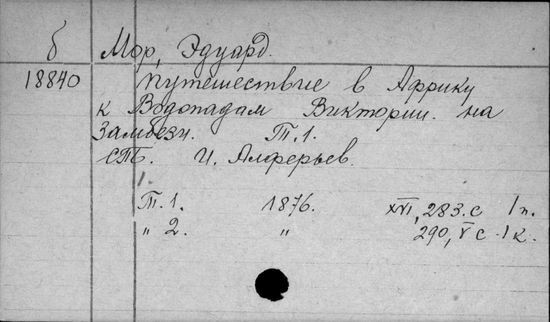 б Мор, Эдуард.
18840 Путешествие в Африку
к Водопадам Виктории на
Замбези. Т. 1.
СПБ. И. Алферьев.
1.
Т. 1. 1876. XVI, 283. с 1 п.
„ 2. „ 290, V с. 1 к.